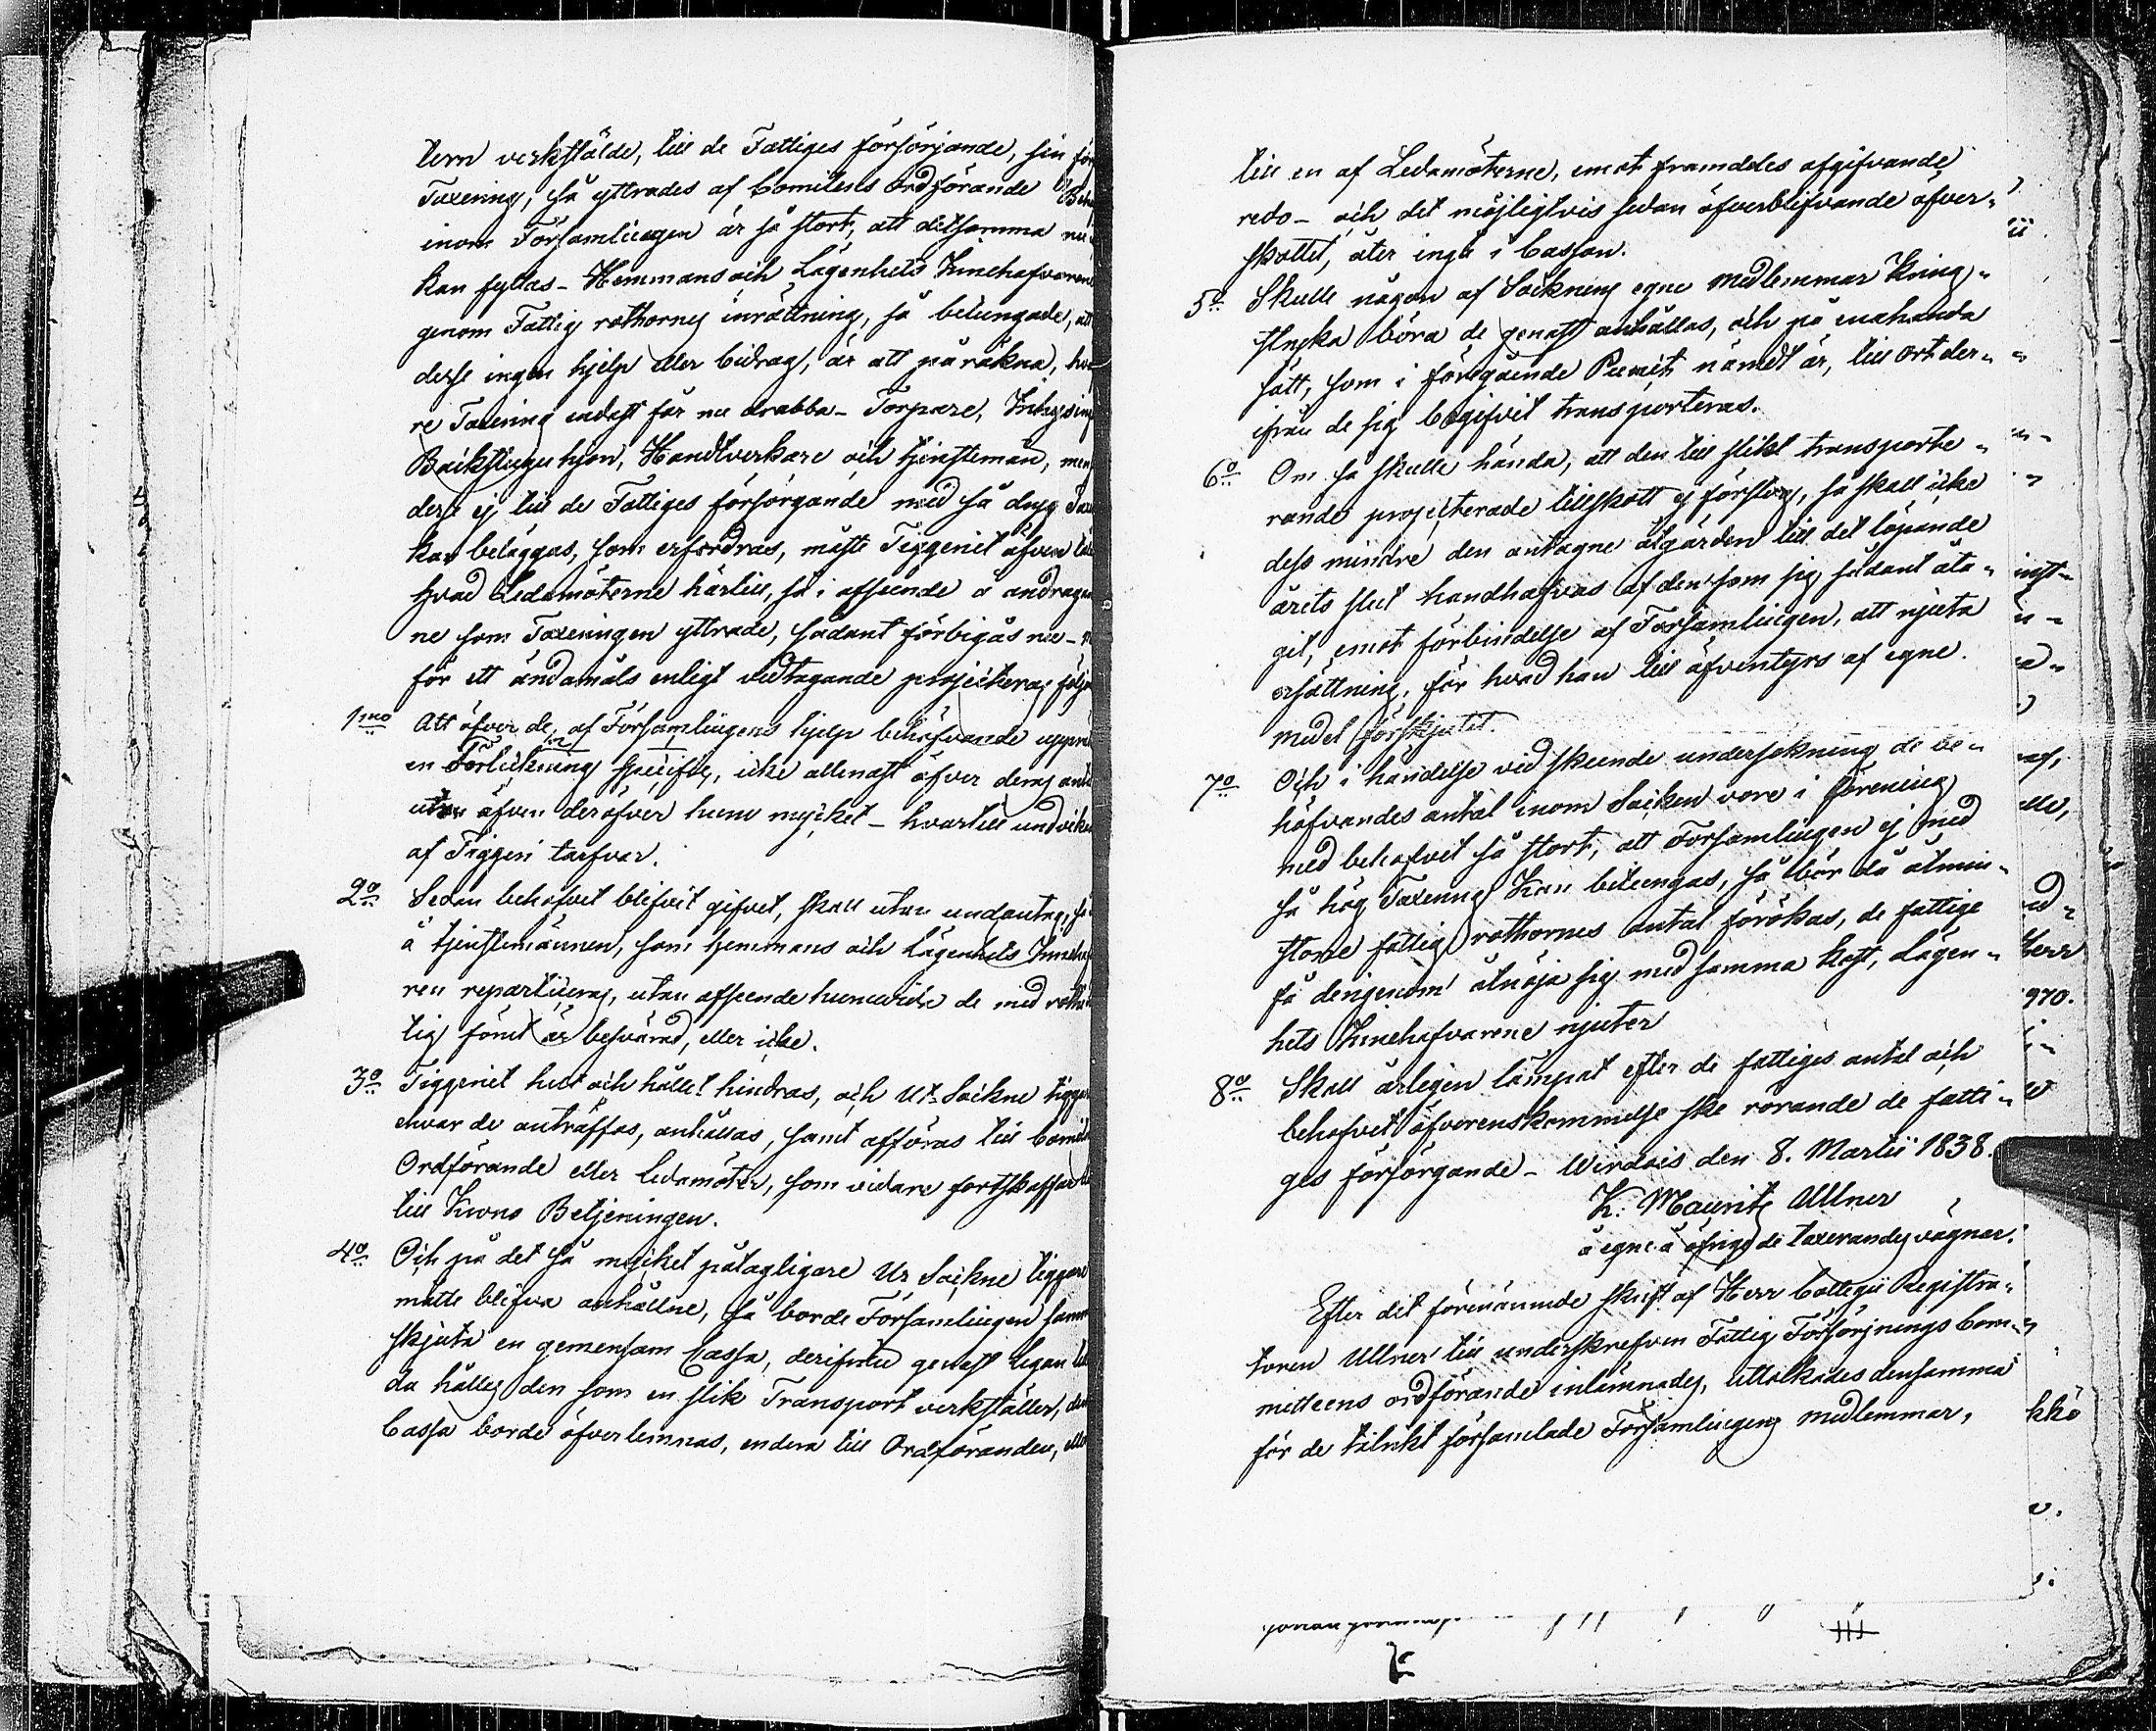 tern verkstälde, till de Fattiges försörjande, sin för
Taxering, så yttrades af Comiteens Ordförande Beho
inom Församlingen är så stort, att detsamma nu
kan fyllas – Hemmans och Lägenhets Innehafvaren
genom Fattig rothornes inrättning, så betungade, att
desse ingen hjelp eller bidrag, är att påräkna, hva
re Taxering endast får nu drabba – Torpare, Inhyses
Backstugu hjon, Handtverkare och tjensteman, men
desse ej till de Fattiges försörgande med så dryg Tax
kan beläggas, som erfordras, måste Tiggeriet äfven
hvad Ledamöterne härtill, så i afseende å andragan
ne som Taxeringen yttrade, sådant förbigås nu –
för ett ändamåls enligt vidtagande projecteras följa
1mo Att öfver de, af Församlingens hjelp behöfvande uppr
en Förtekning specifies, icke allenast öfver deras anta
utan äfven deröfver huru mycket – hvartill undvikan
af Tiggeri tarfvar.
2o Sedan behofvet blifvit gifvet, skall utan undantag, så
å tjenstemännen, som hemmans och Lägenhets Inneha
ren reparticeras, utan afseende huruvida de med roth
lig förut är besvärad, eller icke.
3o Tiggeriet helt och hållet hindras, och Ut Sockne tiggar
ehvar de anträffas, anhållas, samt afföras till Comité
Ordförande eller Ledamöter, som vidare fortskaffar
till Krono Betjeningen.
4o Och på det så mycket påtagligare Ur Sockne tiggare
måtte blifva anhållne, så borde Församlingen samm
skjuta en gemensam Cassa, derifrån genast legan
da hålles den som en slik Transport verkställer, den
Cassa borde öfverlemnas, endera till Ordföranden, eller
till en af Ledamöterne, emot framdeles afgifvande
redo – och det möjligtvis sedan öfverblifvande öfver-
skottet, åter ingå i Cassan.
5o Skulle någon af Socknens egne medlemmar kring-
stryka böra de genast anhållas, och på enahanda
sätt, som i föregående Punct nämdt är, till ort der-
ifrån de sig begifvit transporteras.
6o Om så skulle hända, att den till slikt transporte-
rande projecterade tillskott ej förslog, så skall icke
dess mindre den antagne åtgärden till det löpande
årets slut handhafvas af den som sig sådant åta-
git, emot förbindelse af Församlingen, att njuta
ersättning, för hvad han till äfventyrs af egne
medel förskjutit.
7o Och i händelse vid skeende undersökning de be-
höfvandes antal inom Socken vore i förening
med behofvet så stort, att Församlingen ej med
så hög Taxering kan betungas, så bör då åtmin-
stone fattig rothornes antal förökas, de fattige
få derigenom åtnöja sig med samma kost, Lägen-
hets Innehafvarene njuter
8o Skall årligen lämpat efter de fattiges antal och
behofvet öfverenskommelse ske rörande de fatti-
ges försörgande – Wirdois den 8. Martii 1838.
K: Mauritz Ullner
å egne å öfrige de taxerandes vägnar.
Efter det förenämnde skrift af Herr Collegii Registra-
toren Ullner till underskrefven Fattig Försörjnings Com-
mitteens ordförande inlämnades, uttolkades densamma
för de talrikt församlade Församlingens medlemmar,